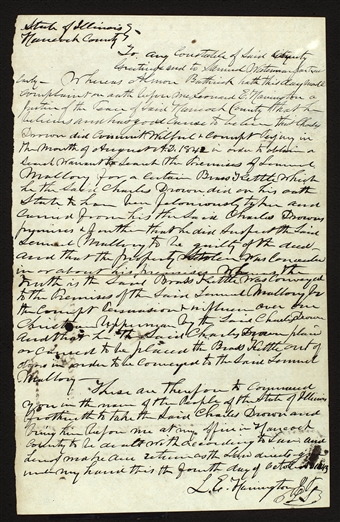 State of Illinois
Hancock County
To any Constable of Said County
Greeting and to Samuel Waterman
Whereas Almon Babbitt hath this day made
Complaint on oath before me Leonard E. Harrington a
Justice of the Peace of Said Hancock County that he
believes and has good Cause to believe that Charles
Drown did Commit Wilful & Corrupt Perjury in
the Month of August A.D. 1842 in order to obtain
Search Warrant to Search the Premises of Lemuel
Mallory for a certain Brass Kettle Which
he the Said Charles Drown did on his oath
State to have been feloniously taken and
carried from his the Said Charles Drowns
premises & further that he did Suspect the Said
Lemuel Mallory to be guilty of the deed
and that the property Stolen Was Concealed
in or about his premises Whereas the
truth is the Said Brass Kettle Was Conveyed
to the Premises of the Said Lemuel Mallory
the Corrupt over
by the Said Charles Drown
And that he the Said Charles Drown
or Caused to be placed the Brass Kettle out of
doors in order to be Conveyed to the Said Lemuel
Mallory
These are therefore to Command
you in the name of the People of the State of Illinois
forthwith to take the Said Charles Drown and
bring him before me at my office in Hancock
County to be dealt with according to Law and
and make due return as the Law directs given
under my hand this the Fourth day of October
L. E. Harrington J.P.